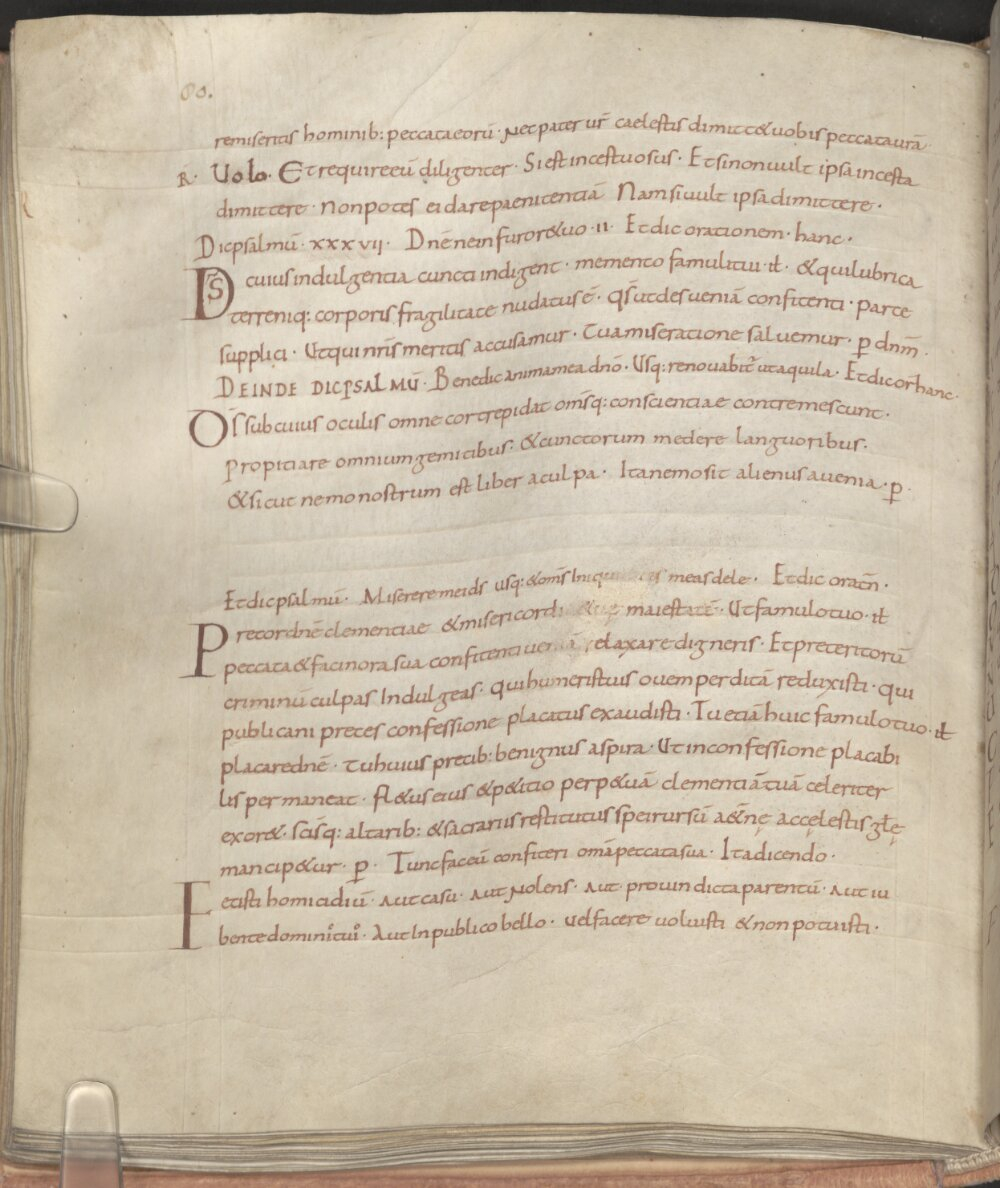 80.
remiseritis hominib: peccata eorū · Nec pater ur̄ caelestis dimitt& uobis peccata uūra ·
R̄ · Uolo · Et require eū diligenter · Si est incestuosus · Et si non uult ipsa incesta
dimittere · non potes ei dare paenitentiā Nam si uult ipsa dimittere ·
Dic psalmū · xxxvii · Dn̄e ne in furore tuo · ii · Et dic orationem · hanc ·
D̄s cuius indulgentia cuncti indigent · memento famuli tui · ił · & qui lubrica
terreniq: corporis fragilitate nudatus ē · qs̄ ut des ueniā confitenti · parce
supplici · Ut qui nr̄is meritis accusamur · Tua miseratione saluemur · p̄ dnm̄ ·
DEINDE DIC PSALMŪ · Benedic anima mea dn̄o · Usq: renouabit᷑ ut aquila · Et dic or̄ hanc ·
Ds̄ sub cuius oculis omne cor trepidat om̄sq: conscientiae contremescunt ·
propitiare omnium gemitibus · & cunctorum medere languoribus ·
& sicut nemo nostrum est liber a culpa · Ita nemo sit alienus a uenia · p̄ ·
Et dic psalmū · Miserere mei ds̄ usq: & om̄s Iniquitates meas dele · Et dic oratn̄ ·
Precor dn̄e clementiae & misericordi tue maiestatē · Ut famulo tuo · ił
peccata & facinora sua confitenti ueniā relaxare digneris · Et preteritorū
criminū culpas Indulgeas · qui humeris tuis ouem perditā reduxisti · qui
publicani preces confessione placatus exaudisti · Tu etiā huic famulo tuo · ił
placare dn̄e · Tu huius precib: benignus aspira · Ut in confessione placabi
lis permaneat · fl&us eius & p&itio perp&uā clementiā tuā celeriter
exor& · scīsq: altarib: & sacrariis restitutus spei rursū a&n̄ę accęlestis gl̄ę
mancip&ur · p̄ · Tunc fac eū confiteri omā peccata sua · Ita dicendo ·
Fecisti homicidiū · Aut casu · Aut Nolens · Aut pro uindicta parentū · Aut iu
bente domino tuo · Aut In publico bello · uel facere uoluisti & non potuisti ·